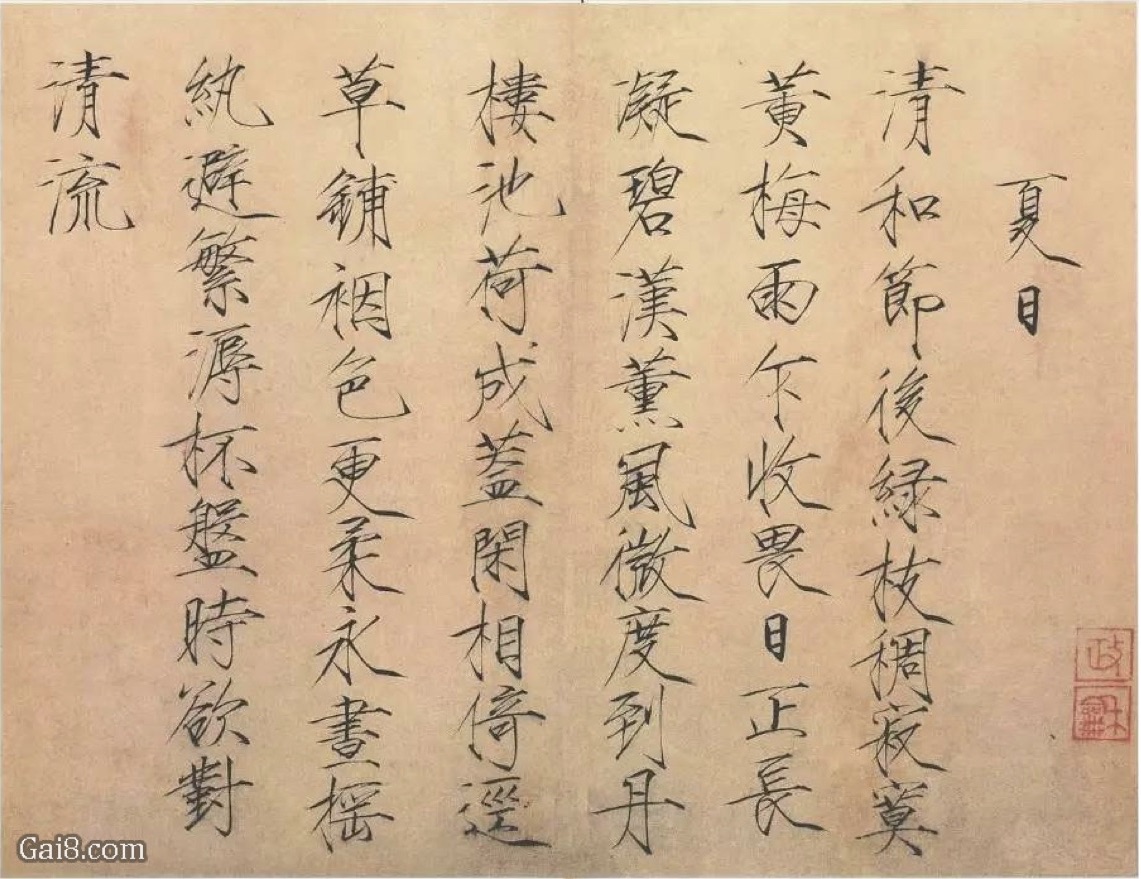 夏日
清和節後緑枝稠寂寞
黄梅雨乍收畏日正長
凝碧漢薰風微度到丹
樓池荷成蓋閑相倚逕
草鋪裀色更柔永晝摇
紈避繁溽杯盤時欲對
清流
政
龢
Gai8.com